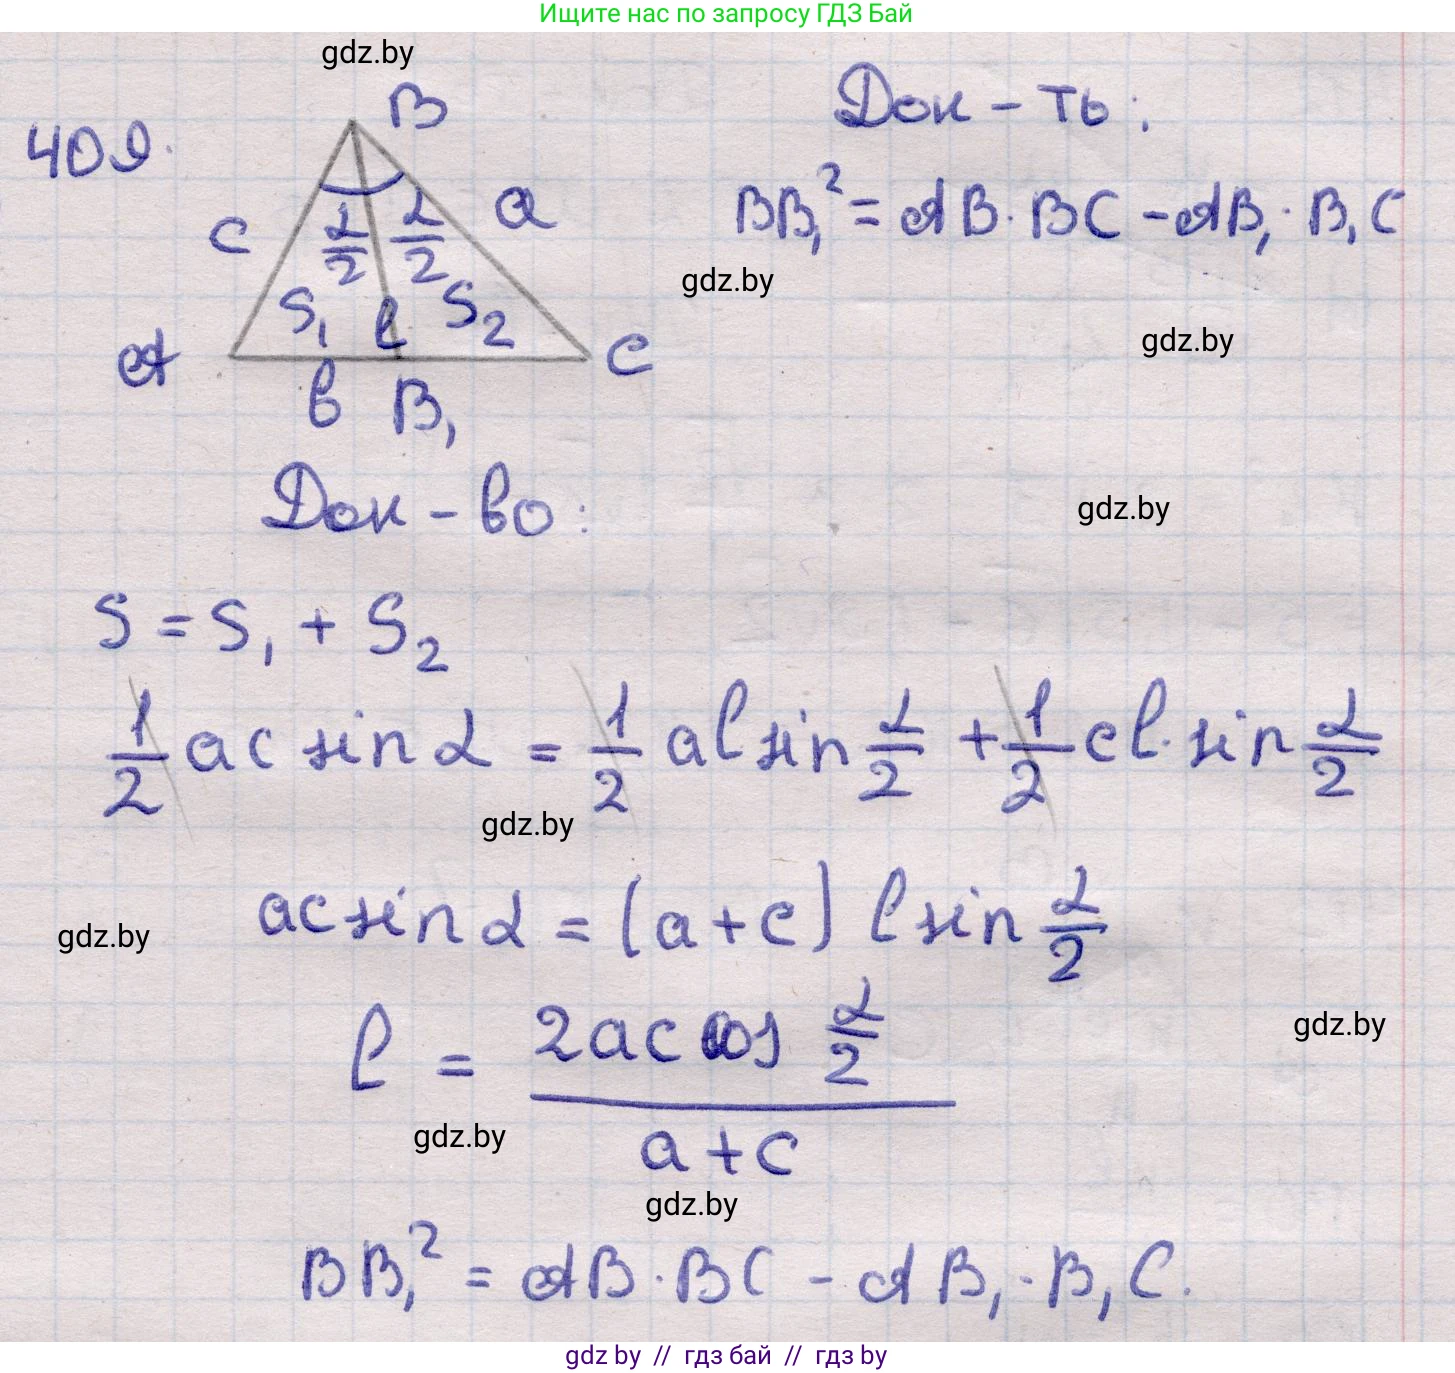 Ищите нас по запросу ГДЗ Бай
gdz.by
409.
B
Док-ть:
c
α/2
α/2
a
BB₁² = AB · BC - AB₁ · B₁C
gdz.by
S₁
l
S₂
gdz.by
A
C
b
B₁
Док-во:
gdz.by
S = S₁ + S₂
1/2 ac sin α = 1/2 al sin α/2 + 1/2 cl · sin α/2
gdz.by
ac sin α = (a+c) l sin α/2
gdz.by
l = 2ac cos α/2 / a+c
gdz.by
gdz.by
gdz.by
BB₁² = AB · BC - AB₁ · B₁C.
gdz by // гдз бай // гдз by